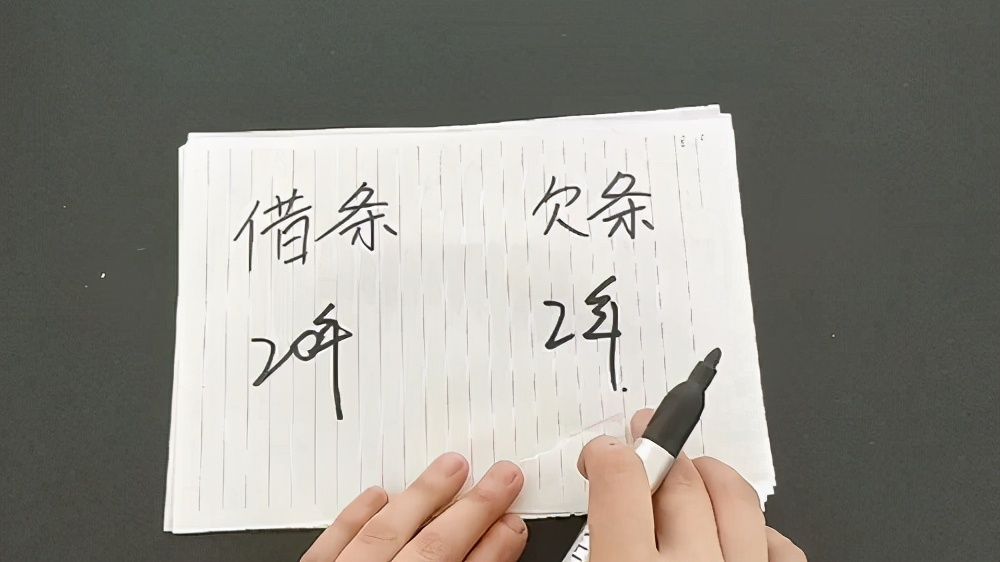 借条 欠条
20年 2年.